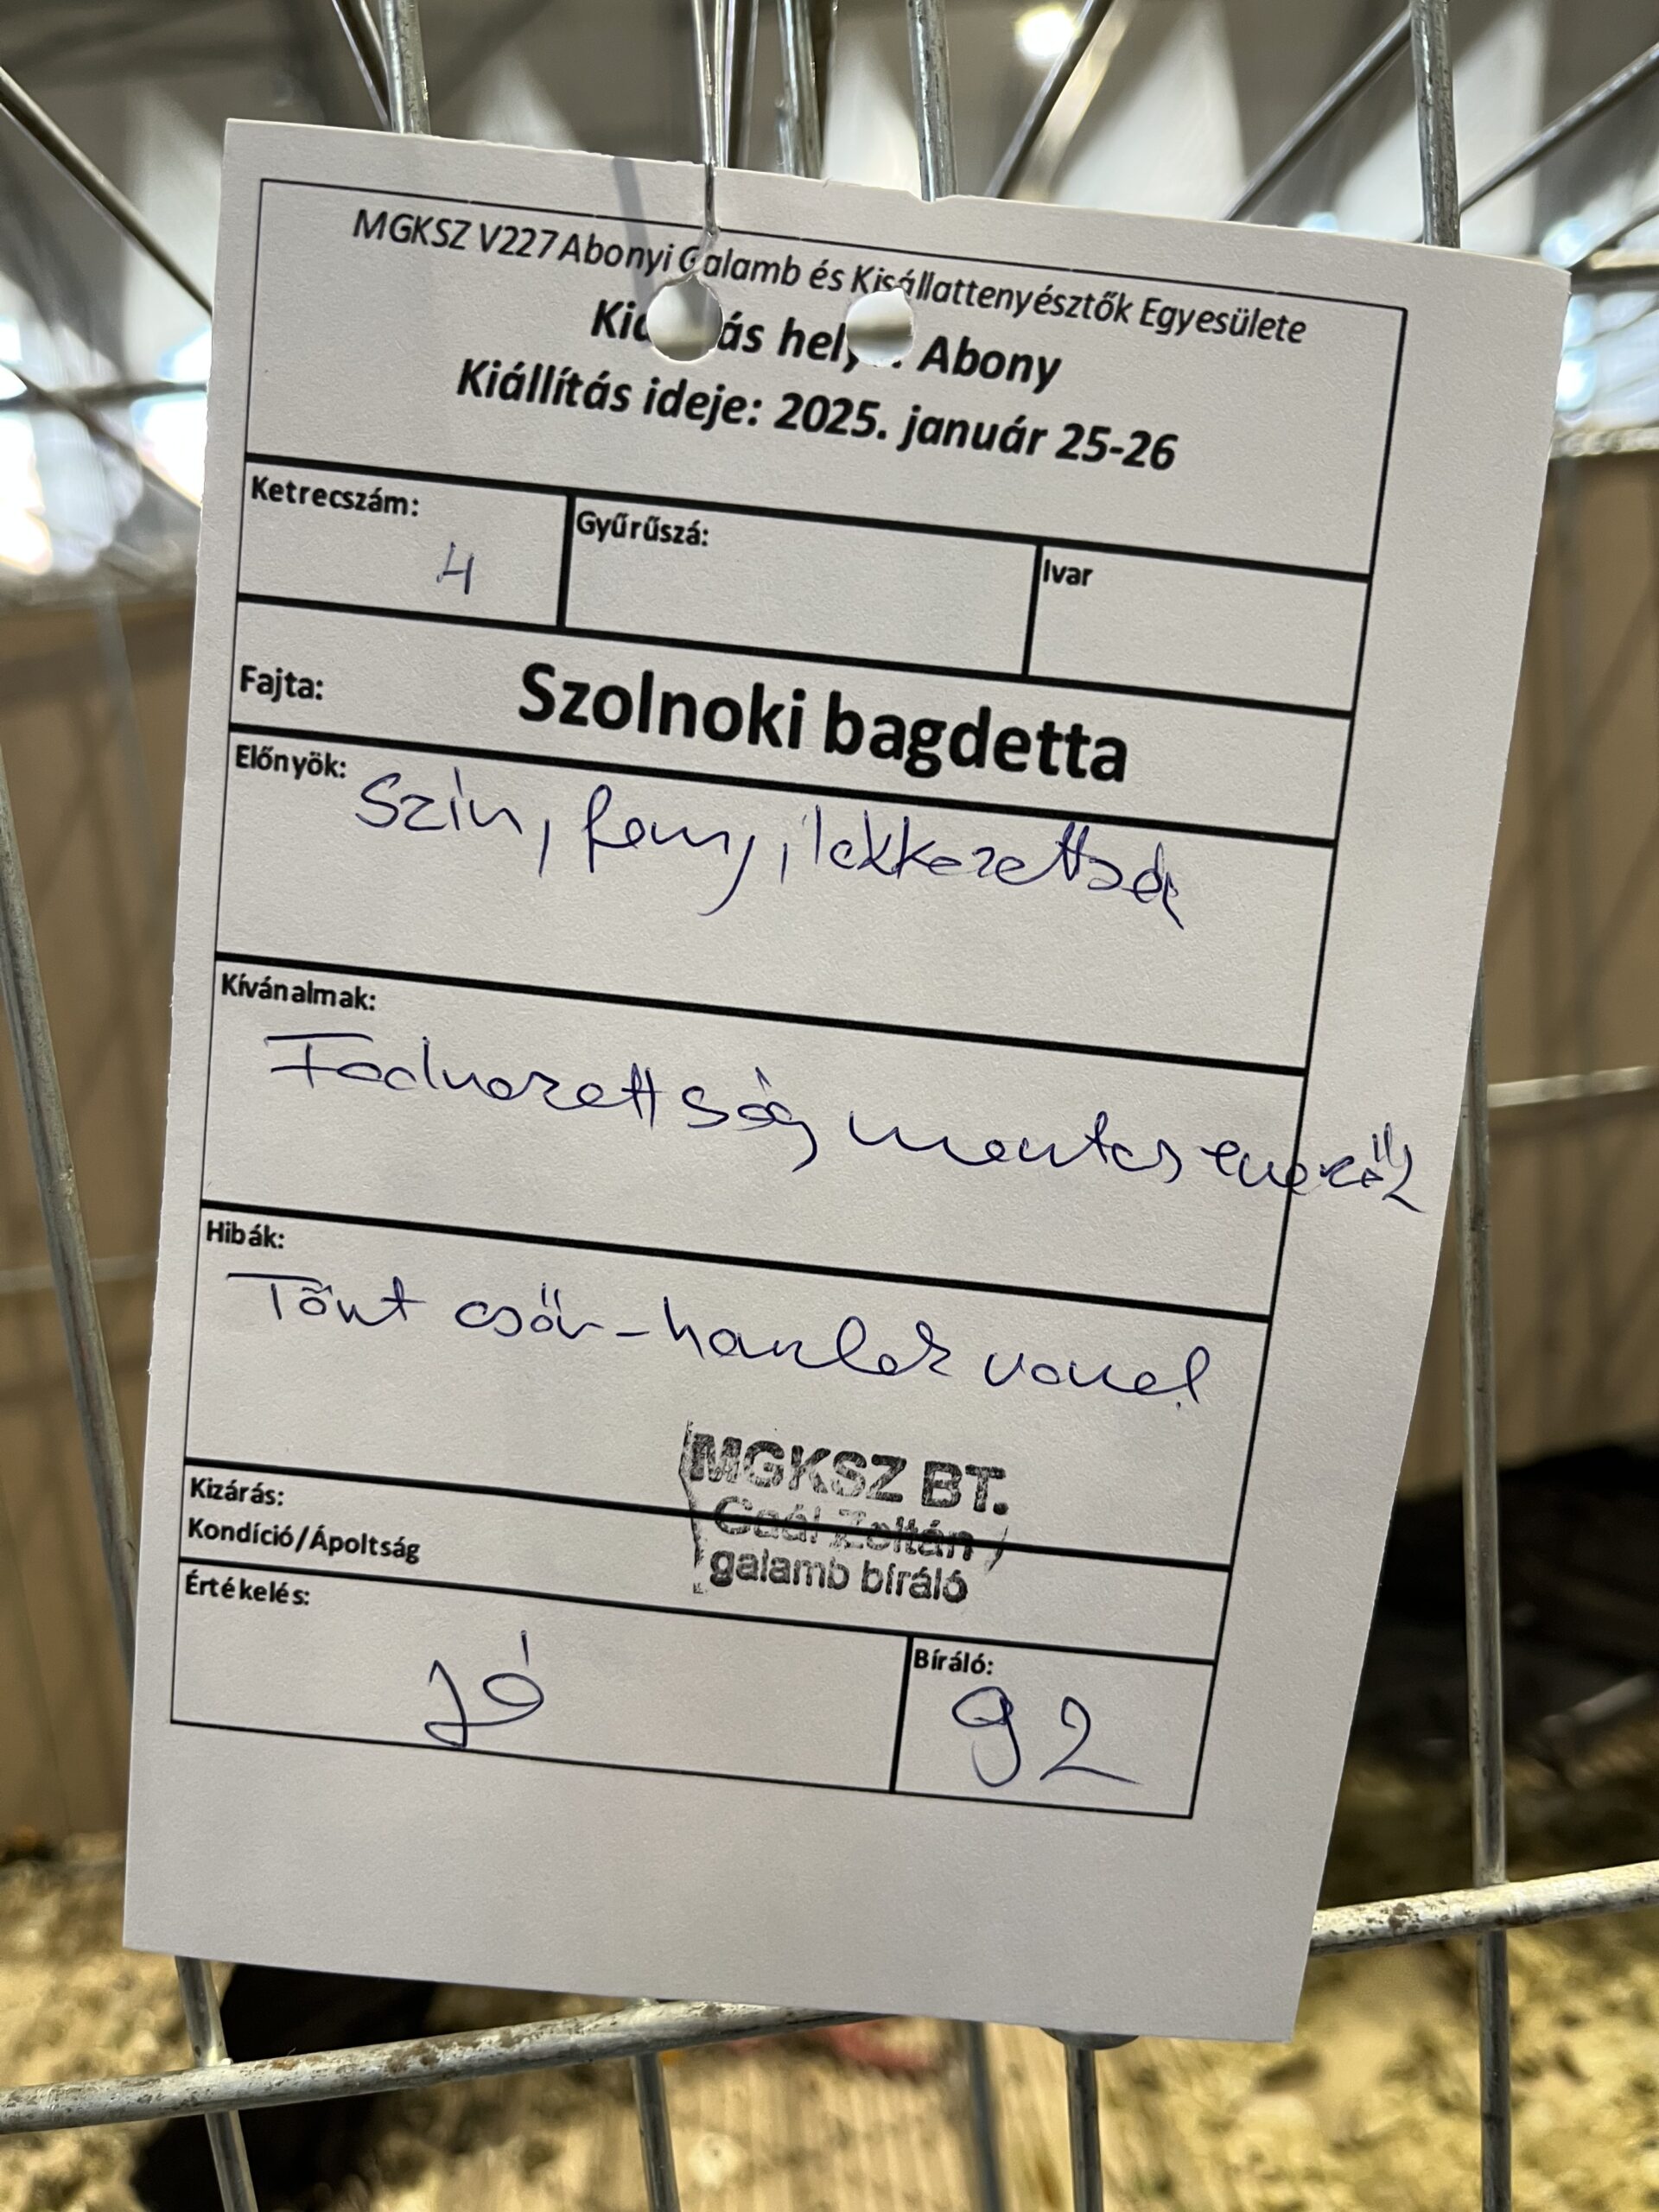 MGKSZ V227 Abonyi Galamb és Kisállattenyésztők Egyesülete
Abony
Kiállítás ideje: 2025. január 25-26
Ketrecszám:
4
Gyűrűszá:
Ivar
Fajta: Szolnoki bagdetta
Előnyök: Szín, fény,
Kívánalmak:
Hibák:
Tört csőr-homlok vonal
MGKSZ BT.
Gaál Zoltán
galamb bíráló
Kizárás:
Kondíció/Ápoltság
Értékelés:
Jó
Bíráló:
92